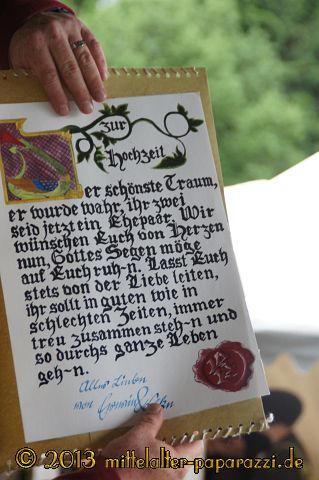 zur
Hochzeit
Der schönste Traum,
er wurde wahr, ihr zwei
seid jetzt ein Ehepaar. Wir
wünschen Euch von Herzen
nun, Gottes Segen möge
auf Euch ruh-n. Lasst Euch
stets von der Liebe leiten,
ihr sollt in guten wie in
schlechten Zeiten, immer
treu zusammen steh-n und
so durchs ganze Leben
geh-n.
von
© 2013 mittelalter-paparazzi.de